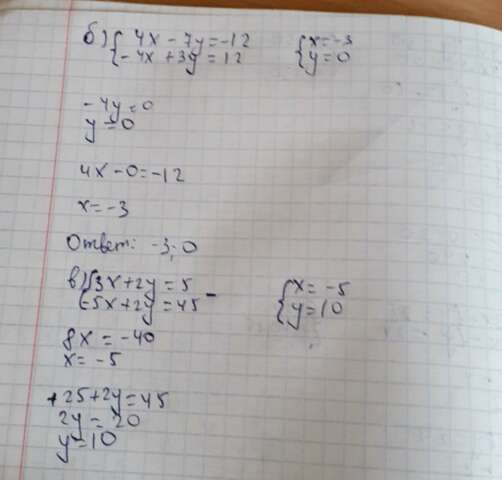 б) { 4x - 7y = -12
{ -4x + 3y = 12
{ x = -3
{ y = 0
-4y = 0
y = 0
4x - 0 = -12
x = -3
Ответ: -3; 0
в) { 3x + 2y = 5
{ -5x + 2y = 45 -
{ x = -5
{ y = 10
8x = -40
x = -5
+25 + 2y = 45
2y = 20
y = 10